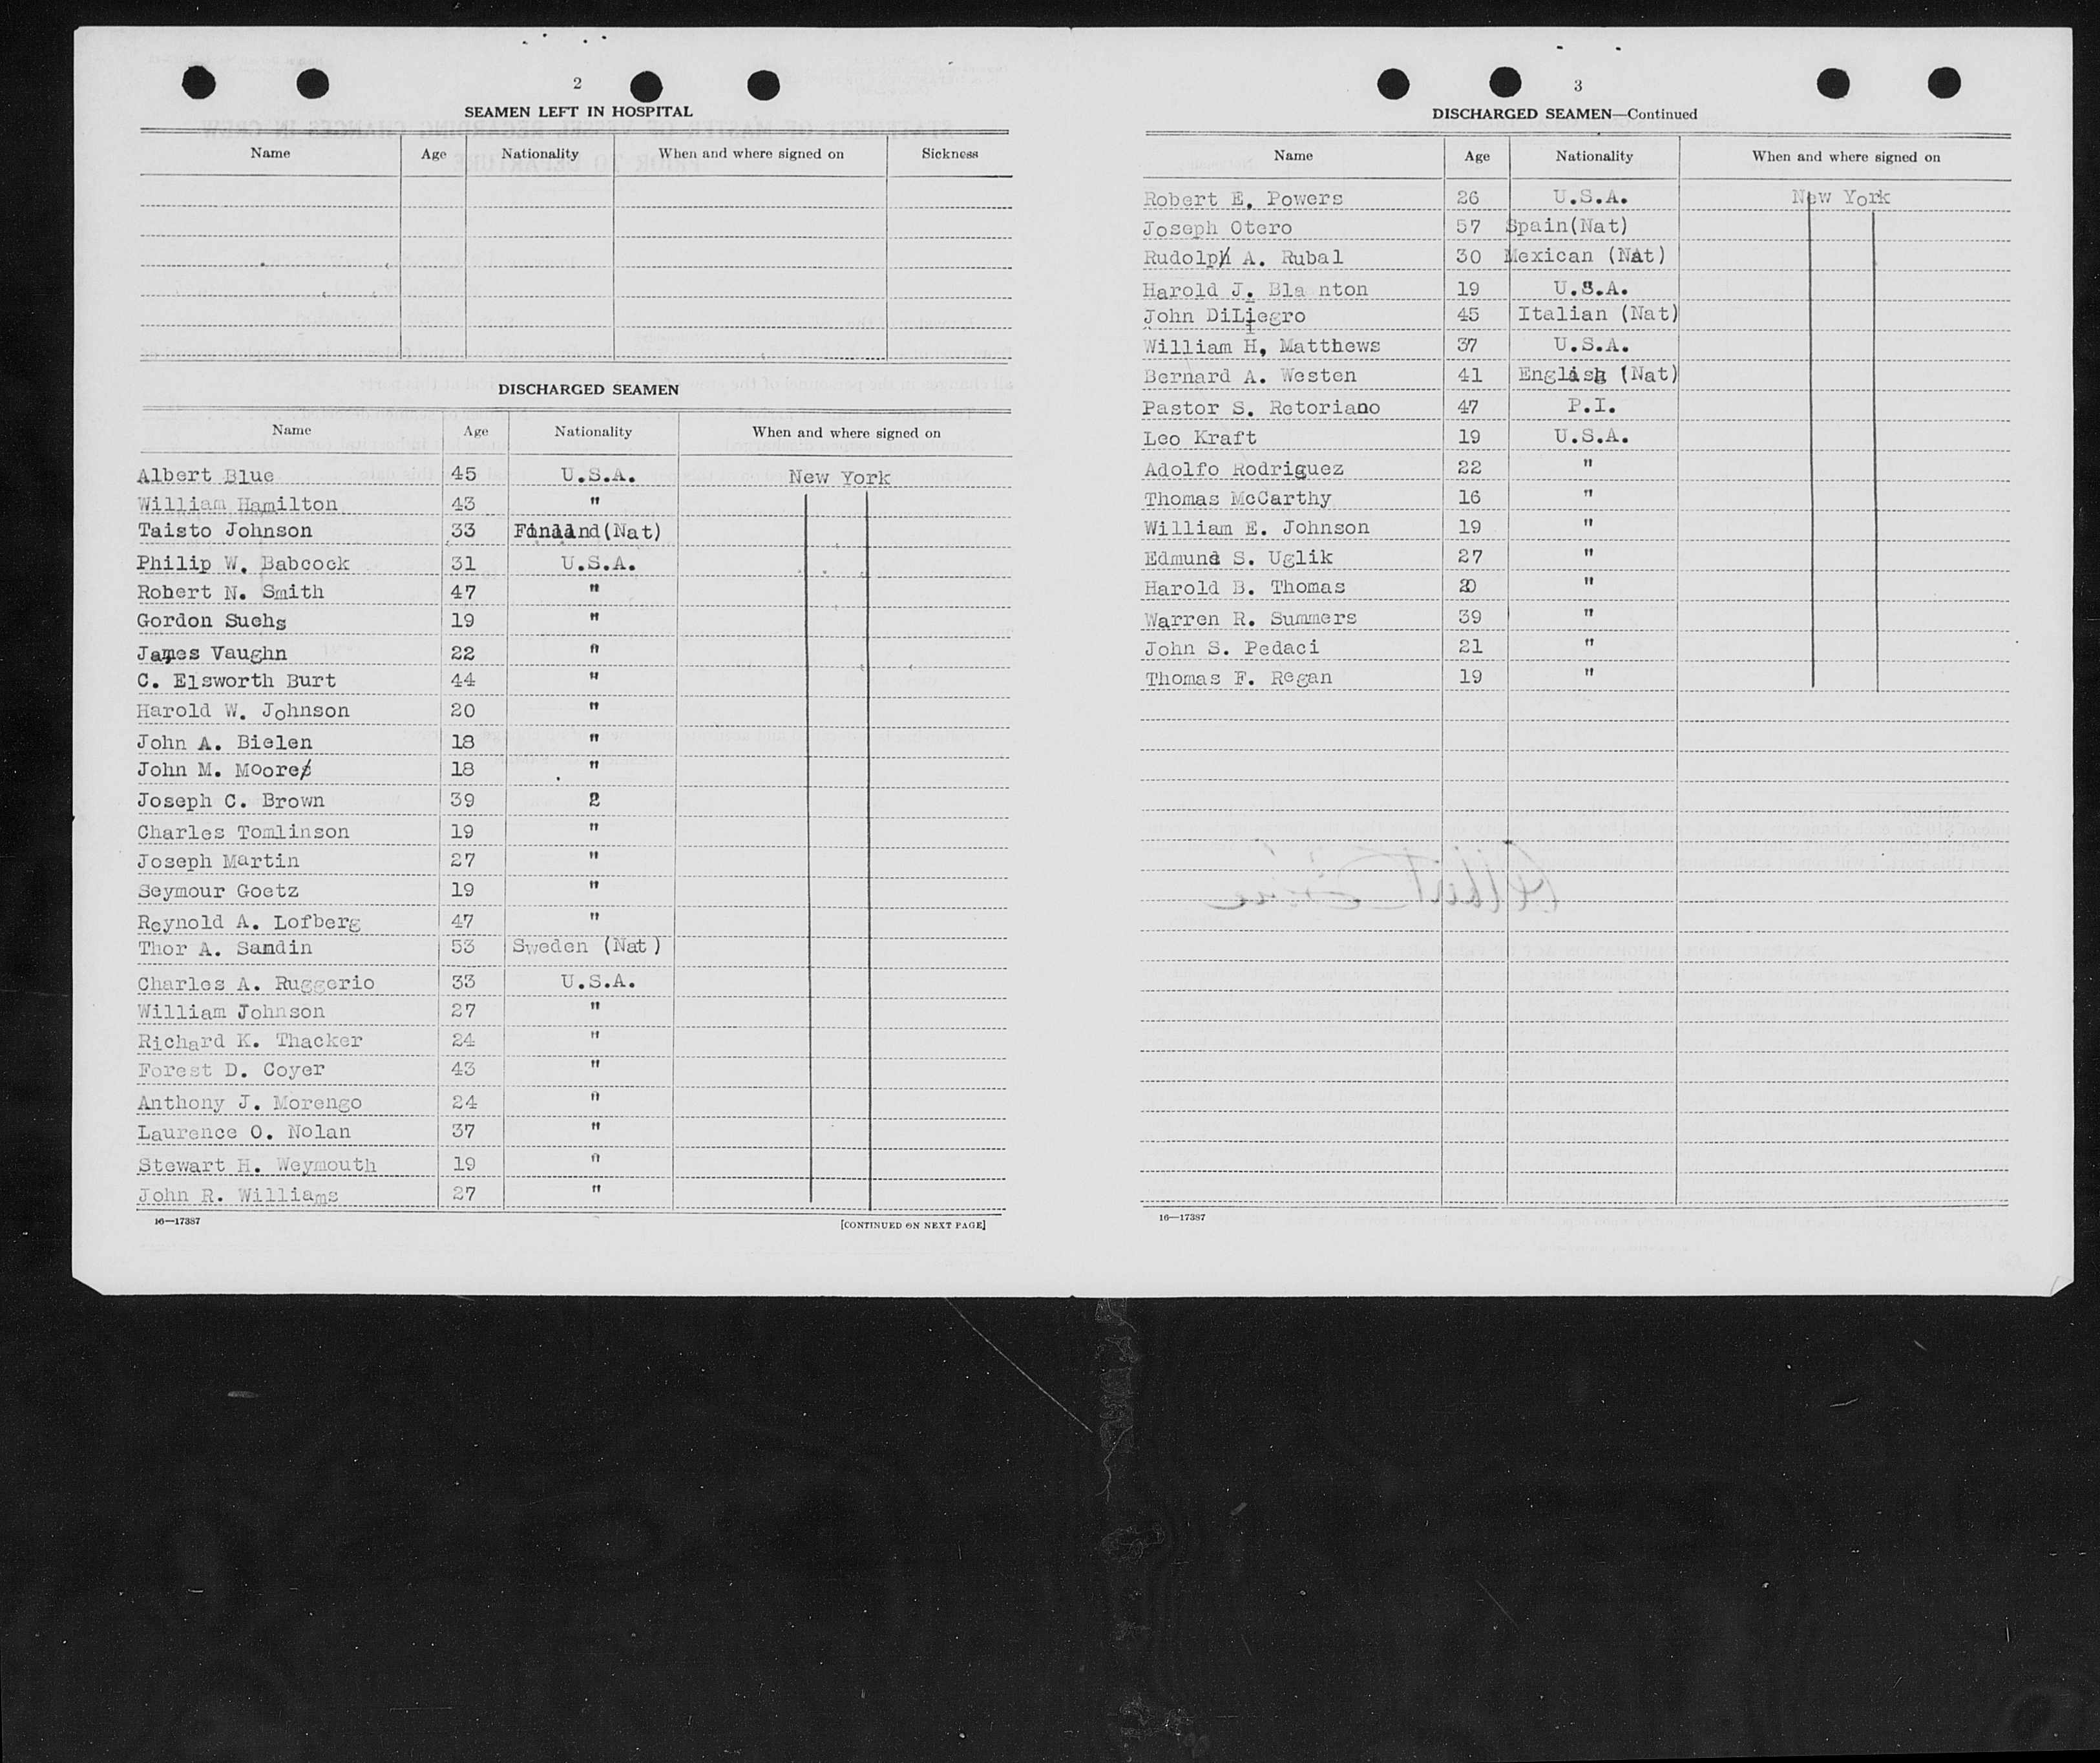 2
SEAMEN LEFT IN HOSPITAL
Name Age Nationality When and where signed on Sickness
DISCHARGED SEAMEN
Name Age Nationality When and where signed on
Albert Blue 45 U.S.A. New York
William Hamilton 43 "
Taisto Johnson 33 Finland(Nat)
Philip W. Babcock 31 U.S.A.
Robert N. Smith 47 "
Gordon Suehs 19 "
James Vaughn 22 "
C. Elsworth Burt 44 "
Harold W. Johnson 20 "
John A. Bielen 18 "
John M. Moore 18 "
Joseph C. Brown 39 "
Charles Tomlinson 19 "
Joseph Martin 27 "
Seymour Goetz 19 "
Reynold A. Lofberg 47 "
Thor A. Sandin 53 Sweden (Nat)
Charles A. Ruggerio 33 U.S.A.
William Johnson 27 "
Richard K. Thacker 24 "
Forest D. Coyer 43 "
Anthony J. Morengo 24 "
Laurence O. Nolan 37 "
Stewart H. Weymouth 19 "
John R. Williams 27 "
16—17387 [CONTINUED ON NEXT PAGE]
3
DISCHARGED SEAMEN—Continued
Name Age Nationality When and where signed on
Robert E. Powers 26 U.S.A. New York
Joseph Otero 57 Spain(Nat)
Rudolph A. Rubal 30 Mexican (Nat)
Harold J. Bla nton 19 U.S.A.
John DiLiegro 45 Italian (Nat)
William H, Matthews 37 U.S.A.
Bernard A. Westen 41 English (Nat)
Pastor S. Retoriano 47 P.I.
Leo Kraft 19 U.S.A.
Adolfo Rodriguez 22 "
Thomas McCarthy 16 "
William E. Johnson 19 "
Edmund S. Uglik 27 "
Harold B. Thomas 20 "
Warren R. Summers 39 "
John S. Pedaci 21 "
Thomas F. Regan 19 "
16—17387